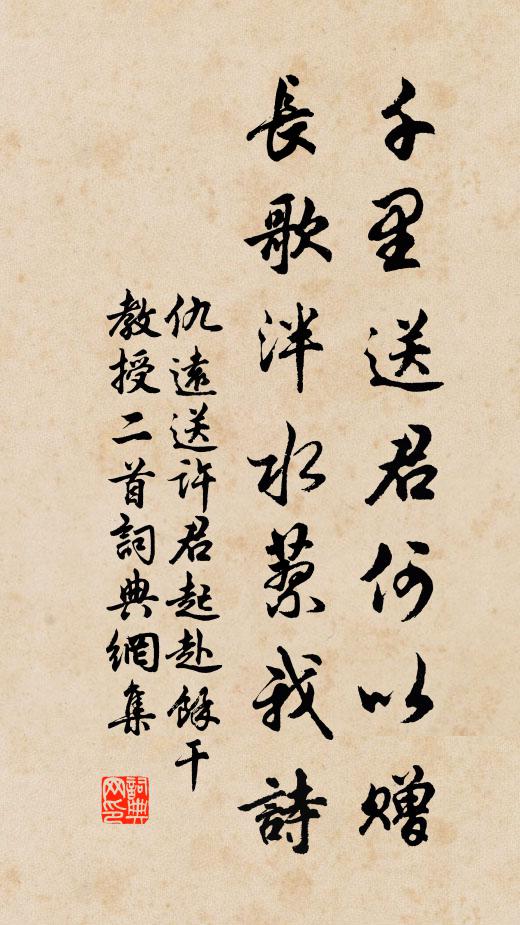 千里送君何以赠
長歌泮水我詩
仇遠送許君起赴餘干
教授二首詞典網集
詞典
网印